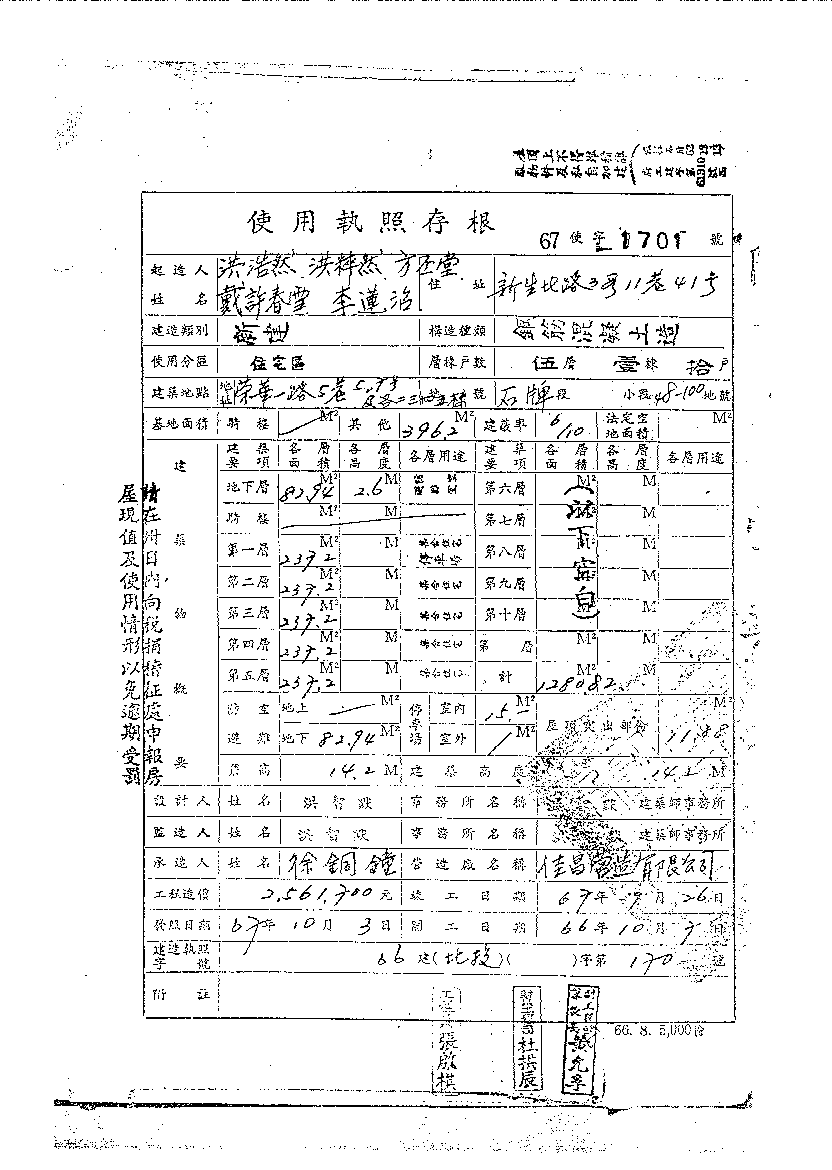 使用執照存根
67 使字 1701 號
起造人姓名 洪浩然 洪粹然 戴許春雪 李蓮治 住址 新生北路3号11巷41号
建造類別 新建 構造種類 鋼筋混凝土造
使用分區 住宅區 層棟戶數 伍層 壹棟 拾戶
建築地點 地址 榮華一路5巷 地號 石牌段 小段48-100地號
基地面積 騎樓 M² 其他 396.2 M² 建蔽率 6/10 法定空地面積 M²
建築要項 各層面積 各層高度 各層用途 建築要項 各層面積 各層高度 各層用途
地下層 82.94 M² 2.6 M 第六層 M² M
騎樓 M² M 第七層 M
第一層 239.2 M² M 第八層 M
第二層 239.2 M² M 第九層 M
第三層 239.2 M² M 第十層 M
第四層 239.2 M² M 第 層 M² M
第五層 239.2 M² M 計 1280.82 M² M
(以下空白)
建築物概要
防空避難 地上 M² 停車場 室內 15 M² 屋頂突出部份 11.88 M²
地下 82.94 M² 室外 1 M²
簷高 14.2 M 建築高度 14.2 M
設計人 姓名 洪智 事務所名稱 建築師事務所
監造人 姓名 洪智 事務所名稱 建築師事務所
承造人 姓名 徐銅鐘 營造廠名稱 佳昌營造有限公司
工程造價 2,561,700元 竣工日期 67年9月26日
發照日期 67年10月3日 開工日期 66年10月7日
建造執照字號 66建(北投)( )字第170號
附註
66. 8. 5,000份
請在卅日內向稅捐稽征處申報房
屋現值及使用情形以免逾期受罰
張啟棋
杜拱辰